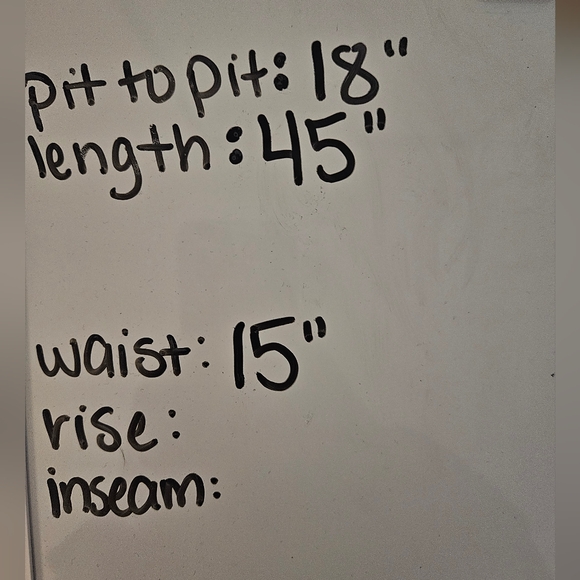 pit to pit: 18"
length: 45"
waist: 15"
rise:
inseam: